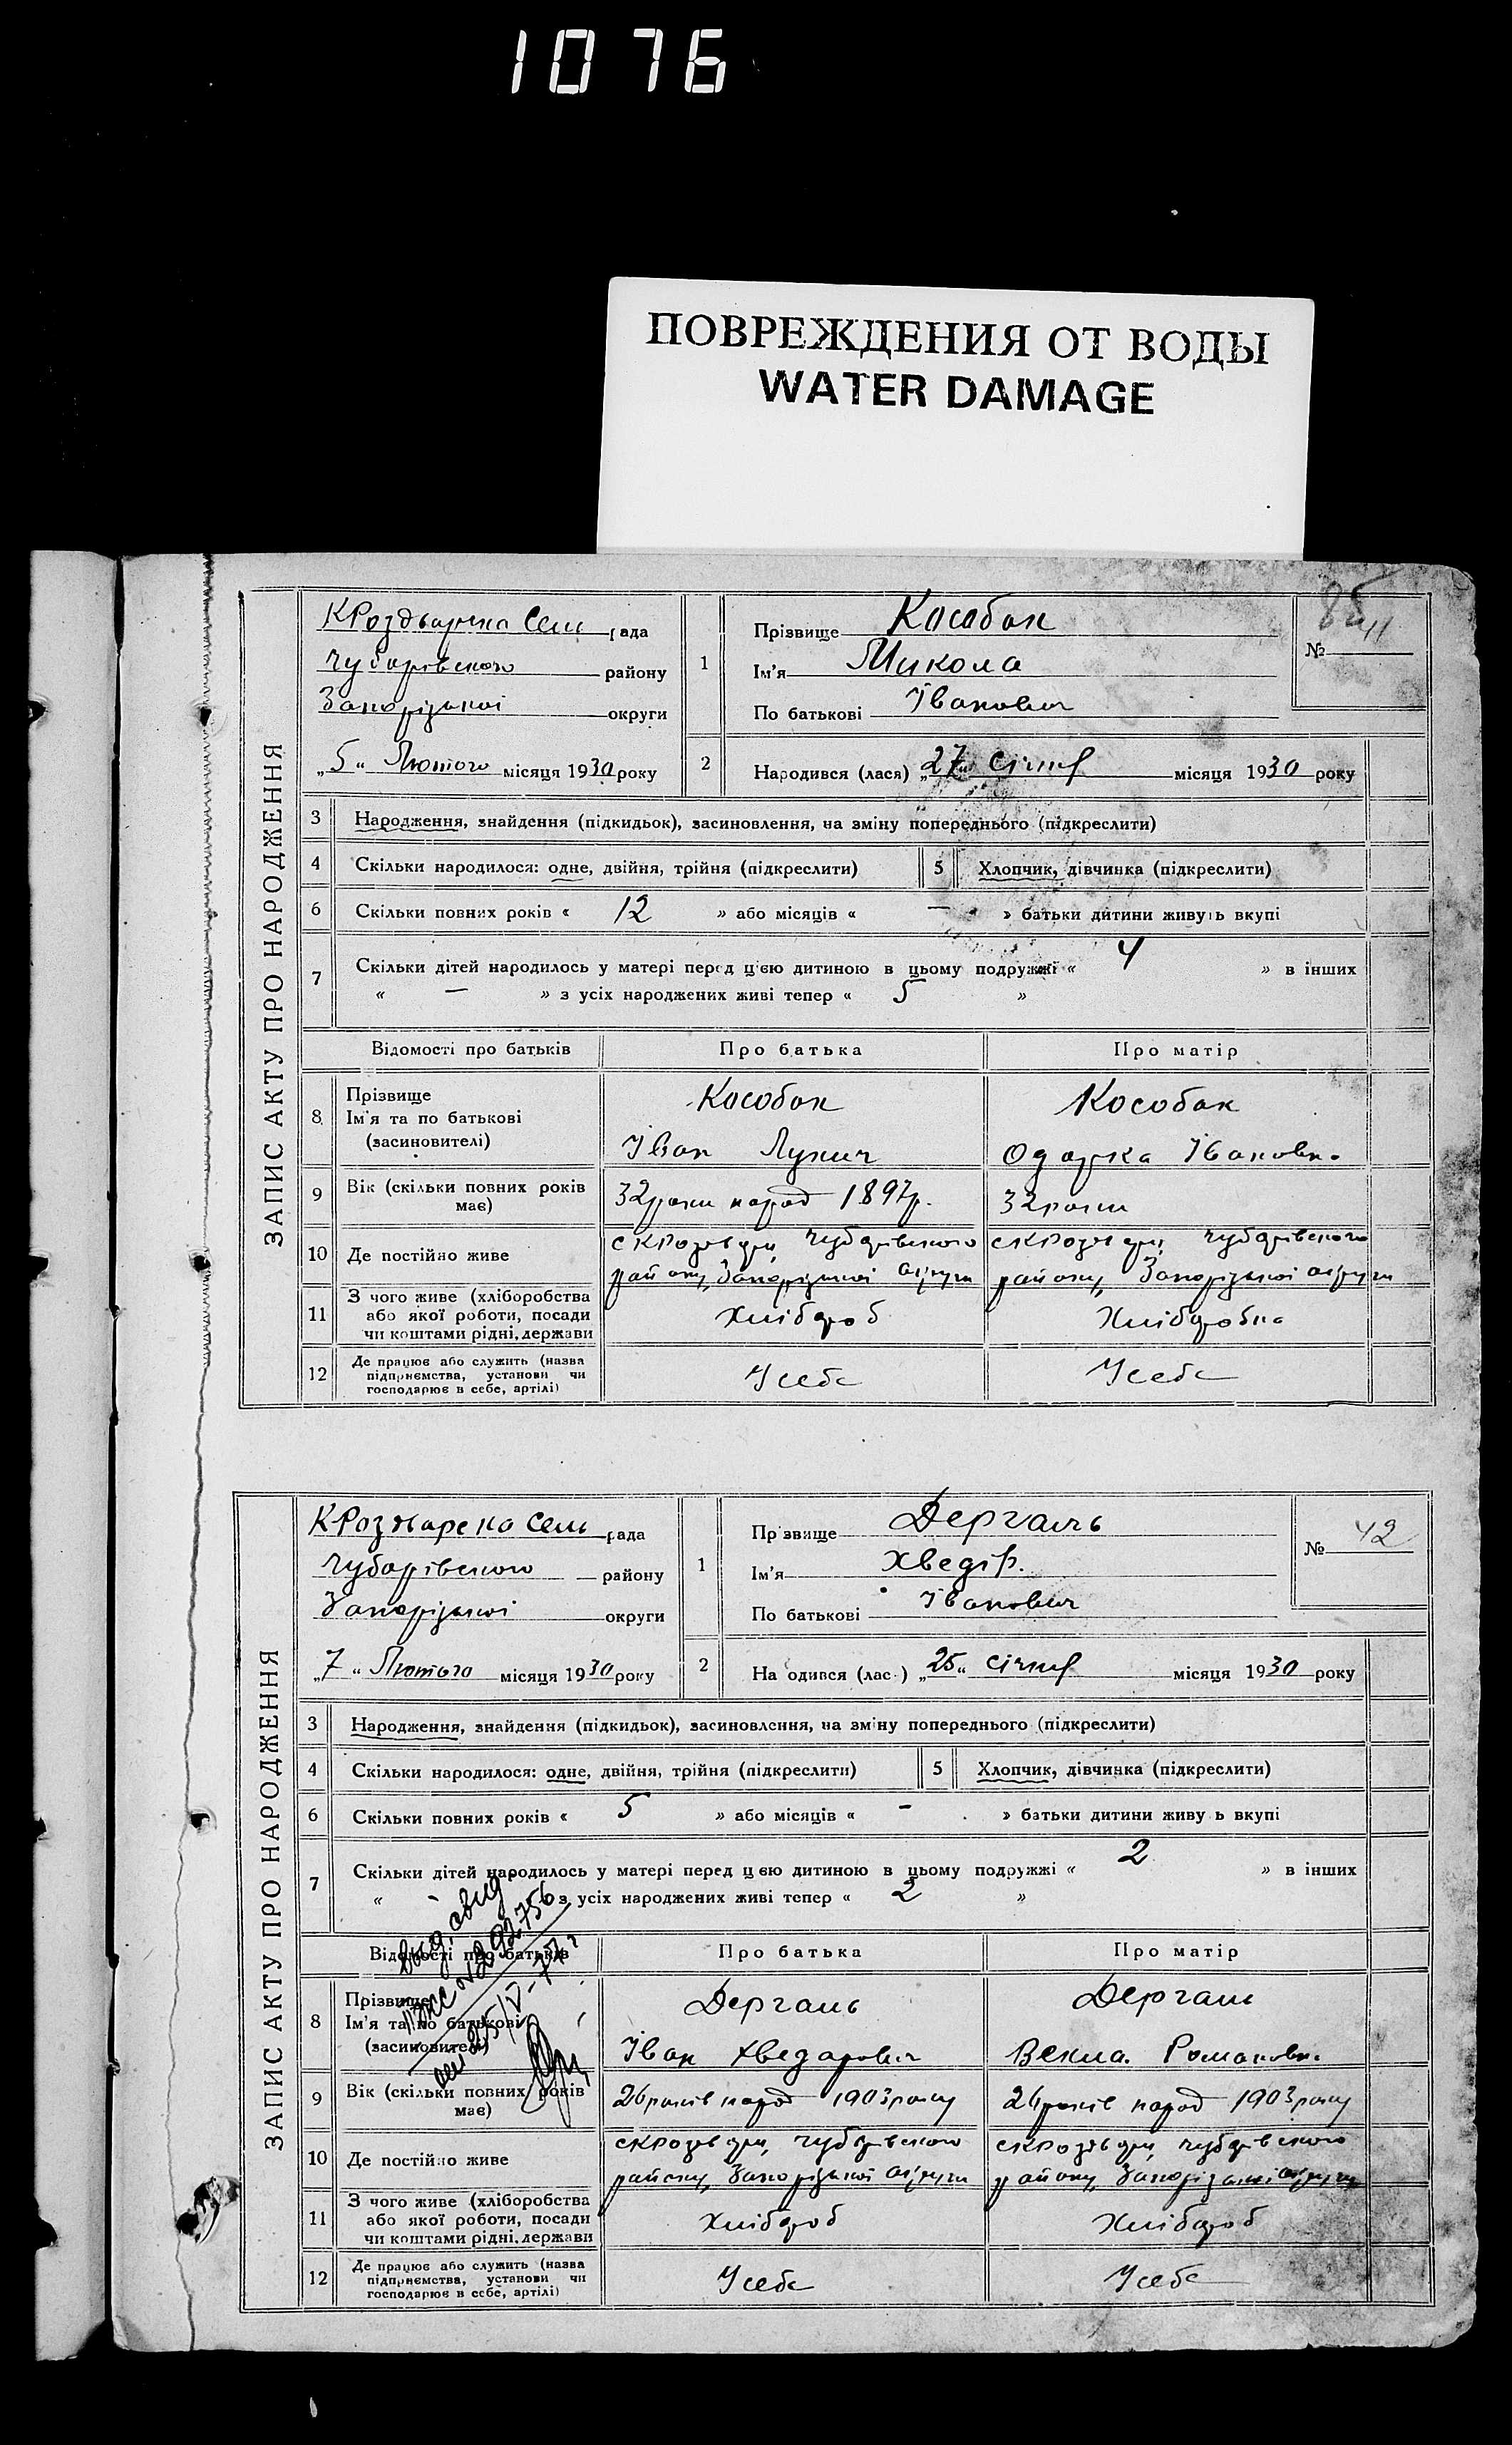 1076
ПОВРЕЖДЕНИЯ ОТ ВОДЫ
WATER DAMAGE
85
ЗАПИС АКТУ ПРО НАРОДЖЕННЯ
Сель рада
Чубарівского району
Запорізької округи
„5“ Лютого місяця 1930 року
1
Прізвище Кособок
Ім'я Микола
По батькові Іванович
№ 41
2
Народився (лася) „27“ Січня місяця 1930 року
3 Народження, знайдення (підкидьок), засиновлення, на зміну попереднього (підкреслити)
4 Скільки народилося: одне, двійня, трійня (підкреслити)
5 Хлопчик, дівчинка (підкреслити)
6 Скільки повних років « 12 » або місяців « — » батьки дитини живуть вкупі
7 Скільки дітей народилось у матері перед цією дитиною в цьому подружжі « 4 » в інших
« — » з усіх народжених живі тепер « 5 »
Відомості про батьків Про батька Про матір
8 Прізвище
Ім'я та по батькові
(засиновителі)
Кособок
Іван Лукич
Кособок
Одарка Івановн.
9 Вік (скільки повних років має)
32 роки народ 1897 р.
32 роки
10 Де постійно живе
Чубарівского
району, Запорізької округи
Чубарівского
району, Запорізької округи
11 З чого живе (хліборобства
або якої роботи, посади
чи коштами рідні, держави
Хлібороб
Хліборобка
12 Де працює або служить (назва
підприємства, установи чи
господарює в себе, артілі)
У себе
У себе
ЗАПИС АКТУ ПРО НАРОДЖЕННЯ
Сель рада
Чубарівского району
Запорізької округи
„7“ Лютого місяця 1930 року
1
Пр звище Дергаль
Ім'я Хведір.
По батькові Іванович
№ 42
2
На одився (лас ) „25“ Січня місяця 1930 року
3 Народження, знайдення (підкидьок), засиновлення, на зміну попереднього (підкреслити)
4 Скільки народилося: одне, двійня, трійня (підкреслити)
5 Хлопчик, дівчинка (підкреслити)
6 Скільки повних років « 5 » або місяців « - » батьки дитини живу ь вкупі
7 Скільки дітей народилось у матері перед ц єю дитиною в цьому подружжі « 2 » в інших
« - » з усіх народжених живі тепер « 2 »
Відомості про батьків Про батька Про матір
8 Прізвище
Ім'я та по батькові
(засиновителі)
Дергаль
Іван Хведарович
Дергаль
Векла. Романовн.
9 Вік (скільки повних років має)
26 років народ 1903 року
26 років народ 1903 року
10 Де постійно живе
Чубарівского
району, Запорізької округи
Чубарівского
району, Запорізької округи
11 З чого живе (хліборобства
або якої роботи, посади
чи коштами рідні, держави
Хлібороб
Хлібороб
12 Де працює або служить (назва
підприємства, установи чи
господарює в себе, артілі)
У себе
У себе